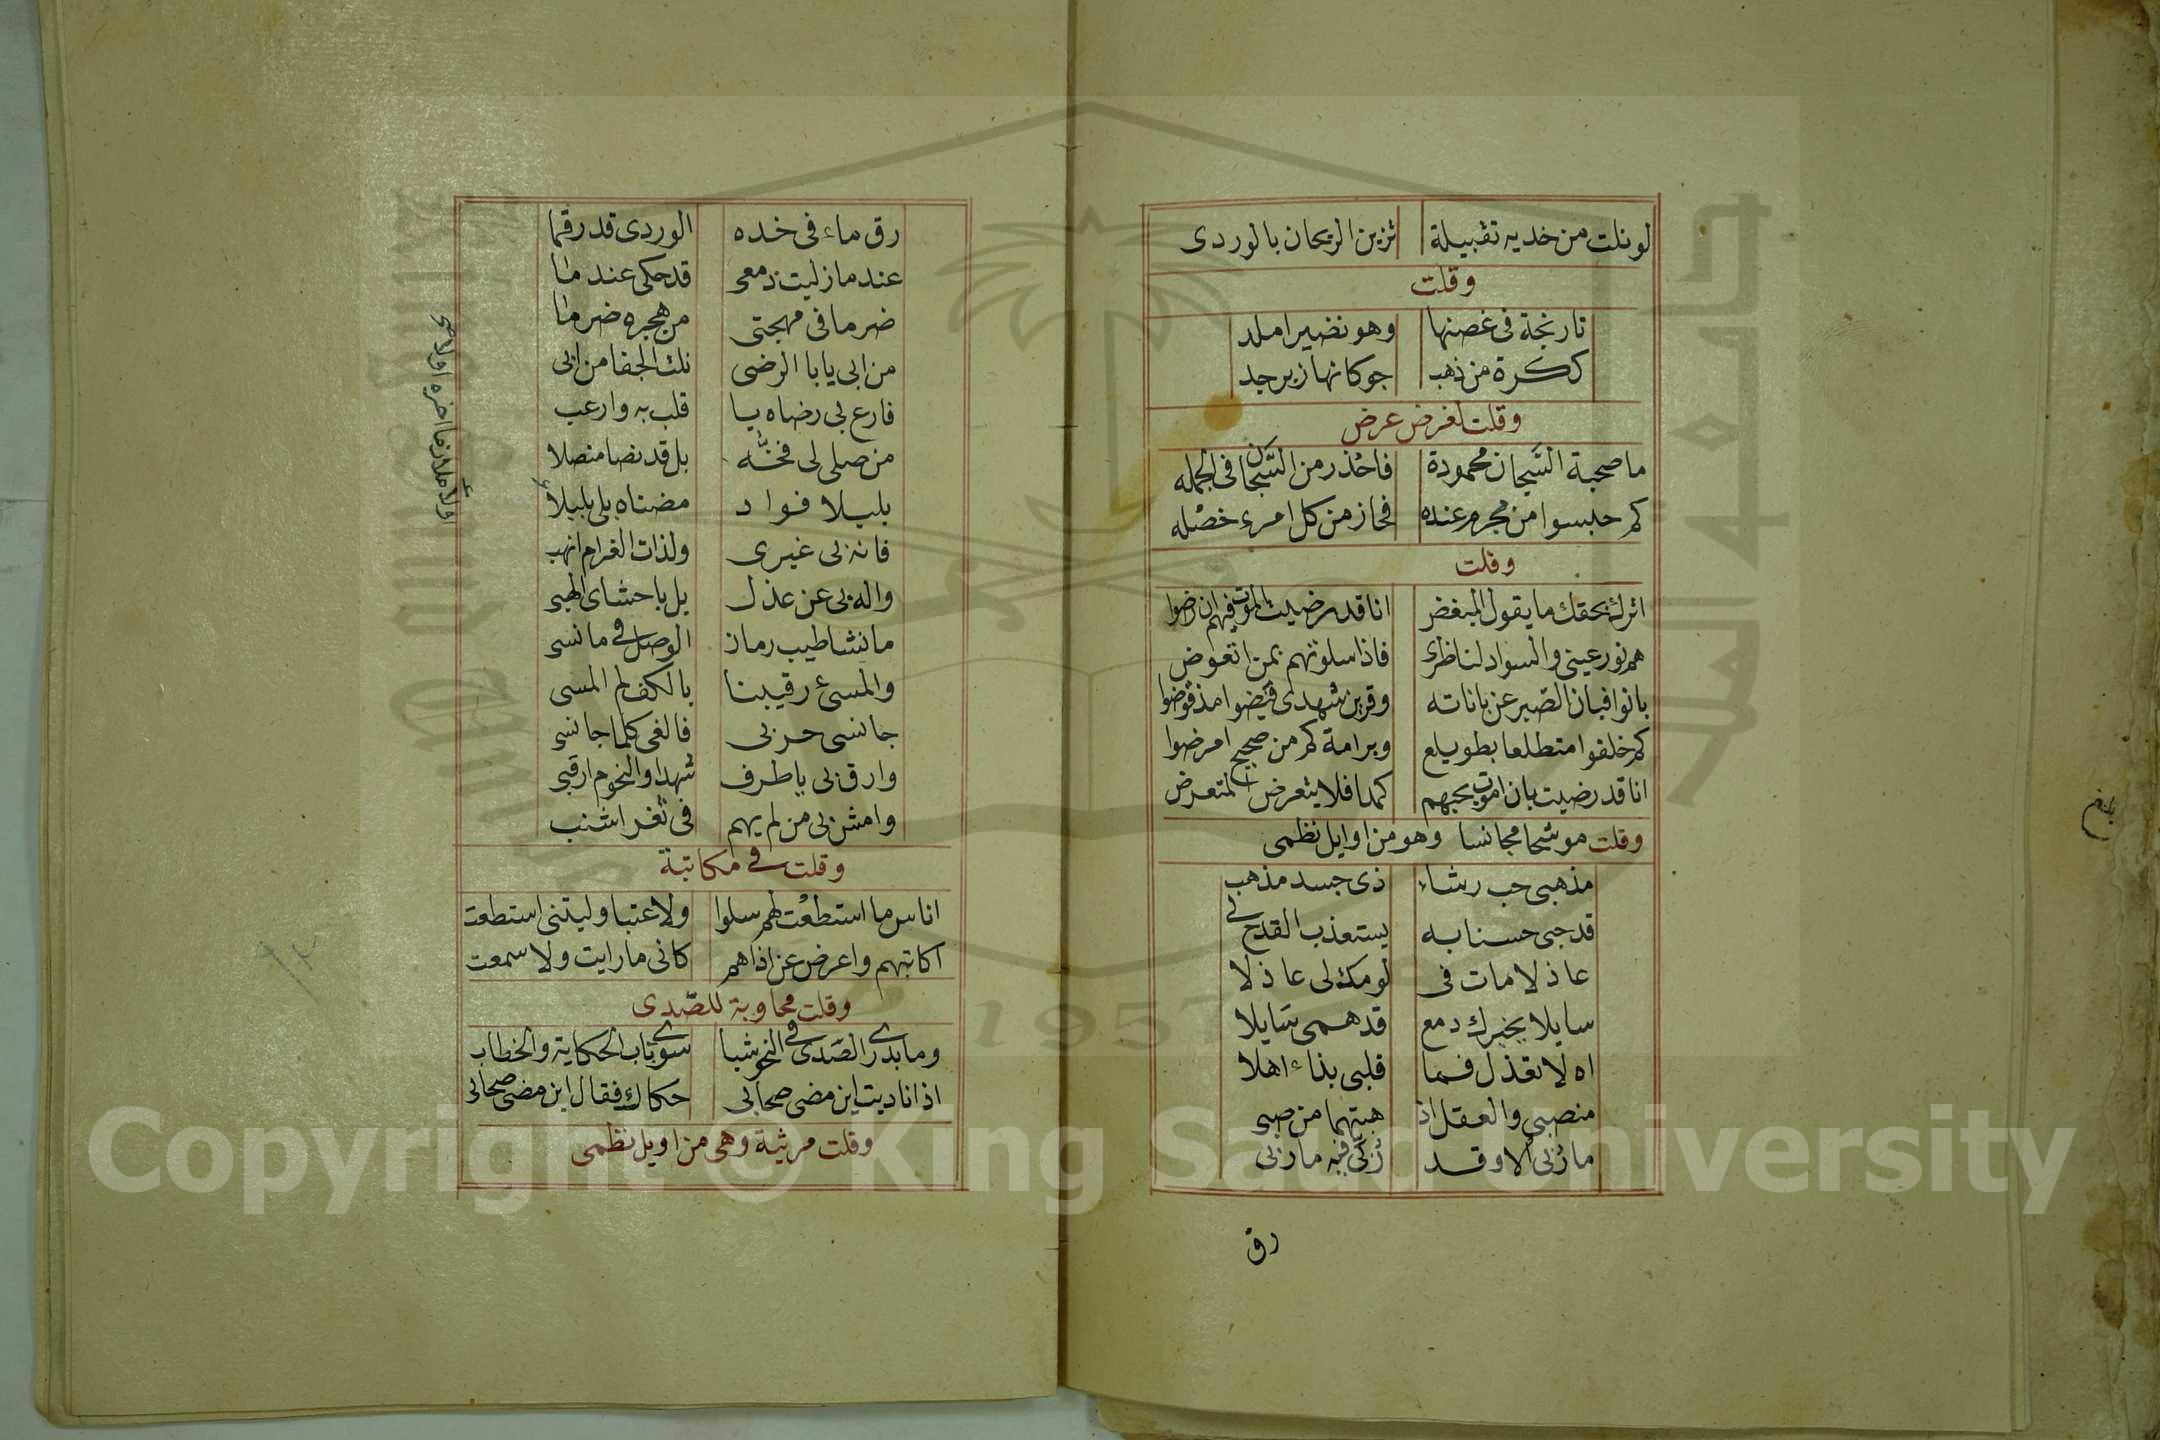 لو نلت من خديه تقبيلة تزين الريحان بالوردى
وقلت
نارنجة فى غصنها وهو نضير املد
ككرة من ذهب جوكانها زبرجد
وقلت لغرض عرض
ما صحبة السَّبجان محمودة فاحُذر من السَّبجان فى الجمله
كم حبسوا من مجرم عنده فحاز من كل امرء خصْله
وقلت
اترك بحقك ما يقول المبغض انا قد رضيت بالموت فيهم ان رضوا
هم نور عينى والسواد لناظرى فاذا سلوتهم بمن اتعوض
بانوا فبان الصّبر عن باناته وقرين شهدى قيضوا مذ قوضوا
كم خلفوا متطلعا بطويلع وبرامة كم من صحيح امرضوا
انا قد رضيت بان اموت بحبهم كمدا فلا يتعرض المتعرض
وقلت موشحا مجانسا وهو من اوايل نظمى
مذهبى حب رشاء ذى جسد مذهب
قد حبى حسنا به يستعذب القدح فى
عاذلا مات فى لومك لى عاذلا
سايلا يخبرك دمع قد همى سَايلا
اه لا تعذل فما قلبى بذاء اهلا
منصبى والعقل اذ هبتهما من صبى
مازُبى الا وقد زُكّى فيه مازبى
رق
بلغ
رق ماء فى خده الوردى قد رقما
عندما زليت دمعى قد حكى عند ما
ضر ما فى مهجتى من هجره ضر ما
من ابى يا با الرضى نلت الجفا من ابى
فارع بى رضاه يا قلب به وارعب
من صلى لى فخّه بل قد نضا منصلا
بليلا فواد مضناه بلى بليلا
فانه بى غيرى ولذات الغرام انهب
واله بى عن عذل يل باحشاى الهبى
ما نشا طيب رماز الوصل فى ما نسى
والمسئ رقيبنا بالكف لم المسى
جانسى حربى فالغى كلما جانسى
وارق بى ياطرف شهدا والنجوم ارقبى
وامش بى من لم يهم فى ثغر اشنب
وقلت فى مكاتبة
اناس ما استطعْت لهم سلوا ولا عتبا وليتنى استطعت
اكاتبهم واعرض عن اذاهم كانى ما رايت ولا سمعت
وقلت مجاوبة للصّدى
وما يدرى الصّدى فى النحو شيا سوى باب الحكاية والخطاب
اذا ناديت اين مضى صحابى حكاك فقال اين مضى صحابى
وقلت مرثية وهى من اوايل نظمى
Copyright © King Saud University
1957